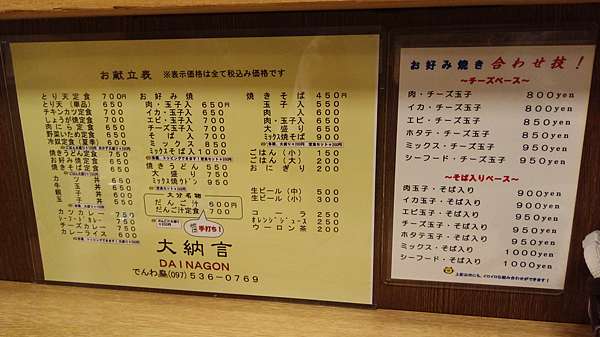 お献立表 ※表示価格は全て税込み価格です
とり天定食 650円
とり天(単品) 550
チキンカツ定食 700
しょうが焼定食 700
肉にら定食 650
野菜いため定食 650
冷奴定食(夏季) 600
焼きうどん定食
焼きそば定食
お好み焼定食
カツ丼
牛丼
親子丼
玉子丼
カツカレー 750
チキンカレー 750
カレーライス 600
お好み焼
肉・玉子入 650円
イカ・玉子入 650
エビ・玉子入 700
チーズ玉子入 700
そば入 700
ミックス 850
ミックスそば入 1000
焼きうどん 550
大盛り 750
ミックス焼ウドン 950
大分名物
だんご汁 600円
だんご汁定食 700
手打ち!
焼きそば 450円
玉子入 550
肉入 600
大盛り 650
ミックス焼そば 900
ごはん(小) 150
ごはん(大) 200
おにぎり 200
生ビール(中) 500
生ビール(小) 300
コーラ 250
オレンジジュース 250
ウーロン茶 200
大納言
DAINAGON
でんわ(097)536-0769
お好み焼き 合わせ技!
～チーズベース～
肉・チーズ玉子 800yen
イカ・チーズ玉子 800yen
エビ・チーズ玉子 850yen
ホタテ・チーズ玉子 850yen
ミックス・チーズ玉子 950yen
シーフード・チーズ玉子 950yen
～そば入りベース～
肉玉子・そば入り 900yen
イカ玉子・そば入り 900yen
エビ玉子・そば入り 950yen
チーズ玉子・そば入り 950yen
ホタテ玉子・そば入り 950yen
ミックス・そば入り 1000yen
シーフード・そば入り 1000yen
上記以外にも、イロイロな組み合わせができます!